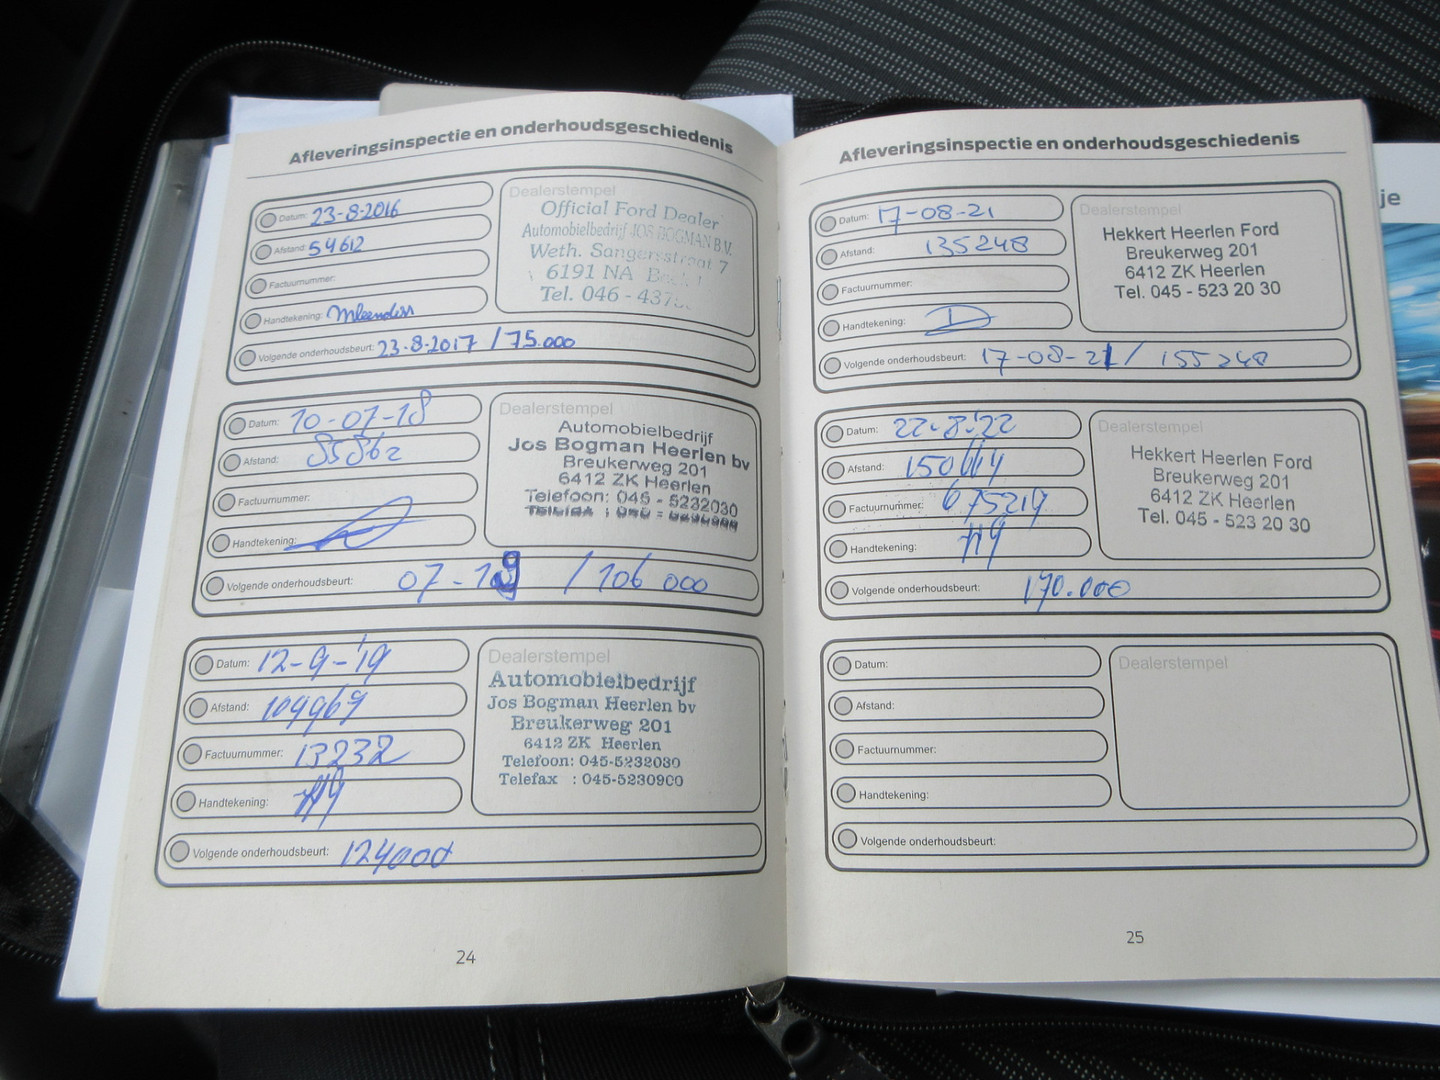 Afleveringsinspectie en onderhoudsgeschiedenis
Datum: 23-8-2016
Afstand: 59612
Factuurnummer:
Handtekening:
Volgende onderhoudsbeurt: 23-8-2017 / 75.000
Dealerstempel
Official Ford Dealer
Automobielbedrijf JOS BOGMAN B.V.
Weth. Sangersstraat 7
6191 NA
Tel. 046 - 437
Datum: 10-07-18
Afstand: 85862
Factuurnummer:
Handtekening:
Volgende onderhoudsbeurt: 07-19 / 106 000
Dealerstempel
Automobielbedrijf
Jos Bogman Heerlen bv
Breukerweg 201
6412 ZK Heerlen
Telefoon: 045 - 5232030
Datum: 12-9-'19
Afstand: 109969
Factuurnummer: 13232
Handtekening:
Volgende onderhoudsbeurt: 124000
Dealerstempel
Automobielbedrijf
Jos Bogman Heerlen bv
Breukerweg 201
6412 ZK Heerlen
Telefoon: 045-5232030
Telefax : 045-5230900
24
Afleveringsinspectie en onderhoudsgeschiedenis
Datum: 17-08-21
Afstand: 135248
Factuurnummer:
Handtekening:
Volgende onderhoudsbeurt: 17-08-21 / 155248
Dealerstempel
Hekkert Heerlen Ford
Breukerweg 201
6412 ZK Heerlen
Tel. 045 - 523 20 30
Datum: 22-8-'22
Afstand: 150614
Factuurnummer: 675219
Handtekening:
Volgende onderhoudsbeurt: 170.000
Dealerstempel
Hekkert Heerlen Ford
Breukerweg 201
6412 ZK Heerlen
Tel. 045 - 523 20 30
Datum:
Afstand:
Factuurnummer:
Handtekening:
Volgende onderhoudsbeurt:
Dealerstempel
25
je